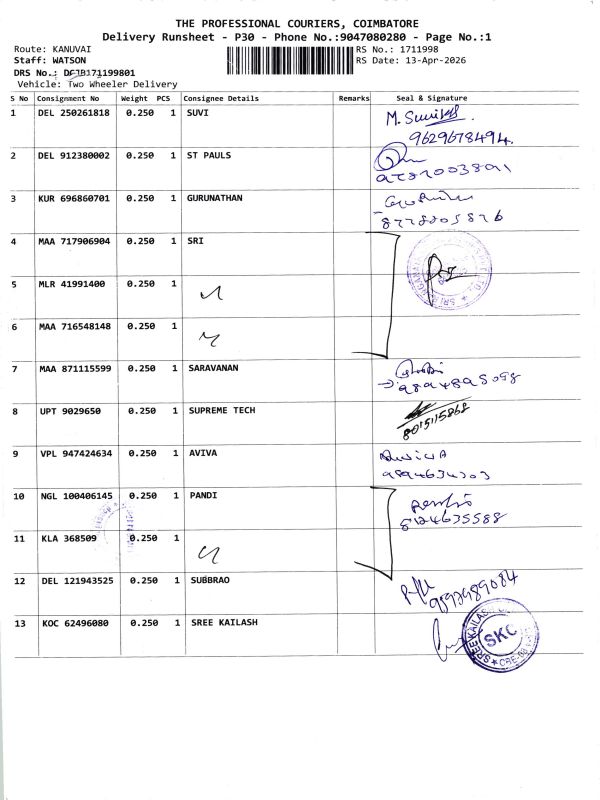 THE PROFESSIONAL COURIERS, COIMBATORE
Delivery Runsheet - P30 - Phone No.:9047080280 - Page No.:1
Route: KANUVAI
RS No.: 1711998
Staff: WATSON
RS Date: 13-Apr-2026
DRS No.:
Vehicle: Two Wheeler Delivery
S No Consignment No Weight PCS Consignee Details Remarks Seal & Signature
1 DEL 250261818 0.250 1 SUVI
9629678494.
2 DEL 912380002 0.250 1 ST PAULS
3 KUR 696860701 0.250 1 GURUNATHAN
4 MAA 717906904 0.250 1 SRI
5 MLR 41991400 0.250 1
6 MAA 716548148 0.250 1
7 MAA 871115599 0.250 1 SARAVANAN
8 UPT 9029650 0.250 1 SUPREME TECH
8015115868
9 VPL 947424634 0.250 1 AVIVA
10 NGL 100406145 0.250 1 PANDI
8124635588
11 KLA 368509 0.250 1
12 DEL 121943525 0.250 1 SUBBRAO
13 KOC 62496080 0.250 1 SREE KAILASH
SKC